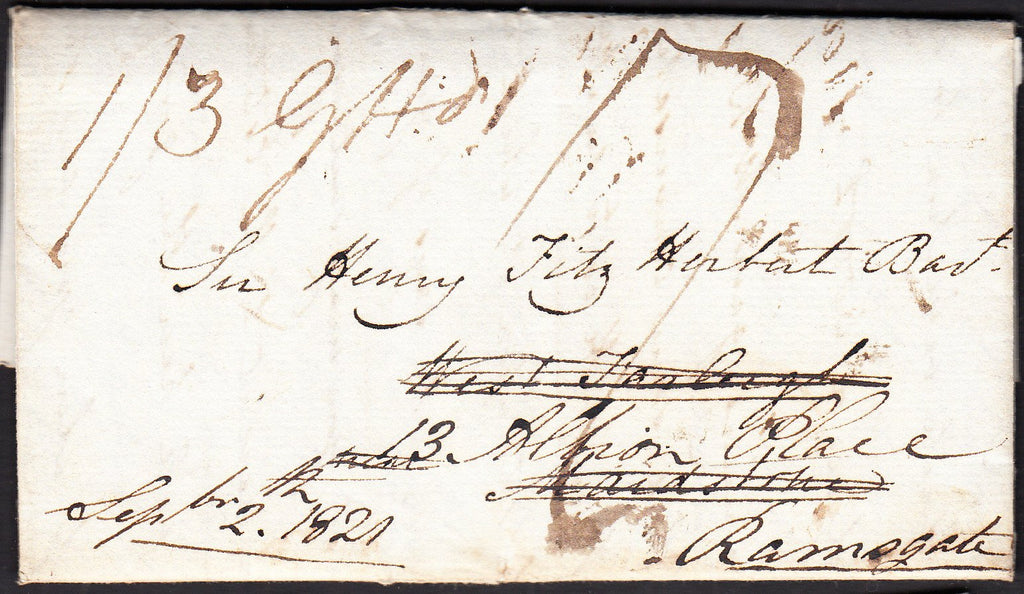 1/3
Sir Henry Fitz Herbert Bart.
West Farleigh
13. Albion Place
Maidstone
Sepbr. 2th. 1821
Ramsgate